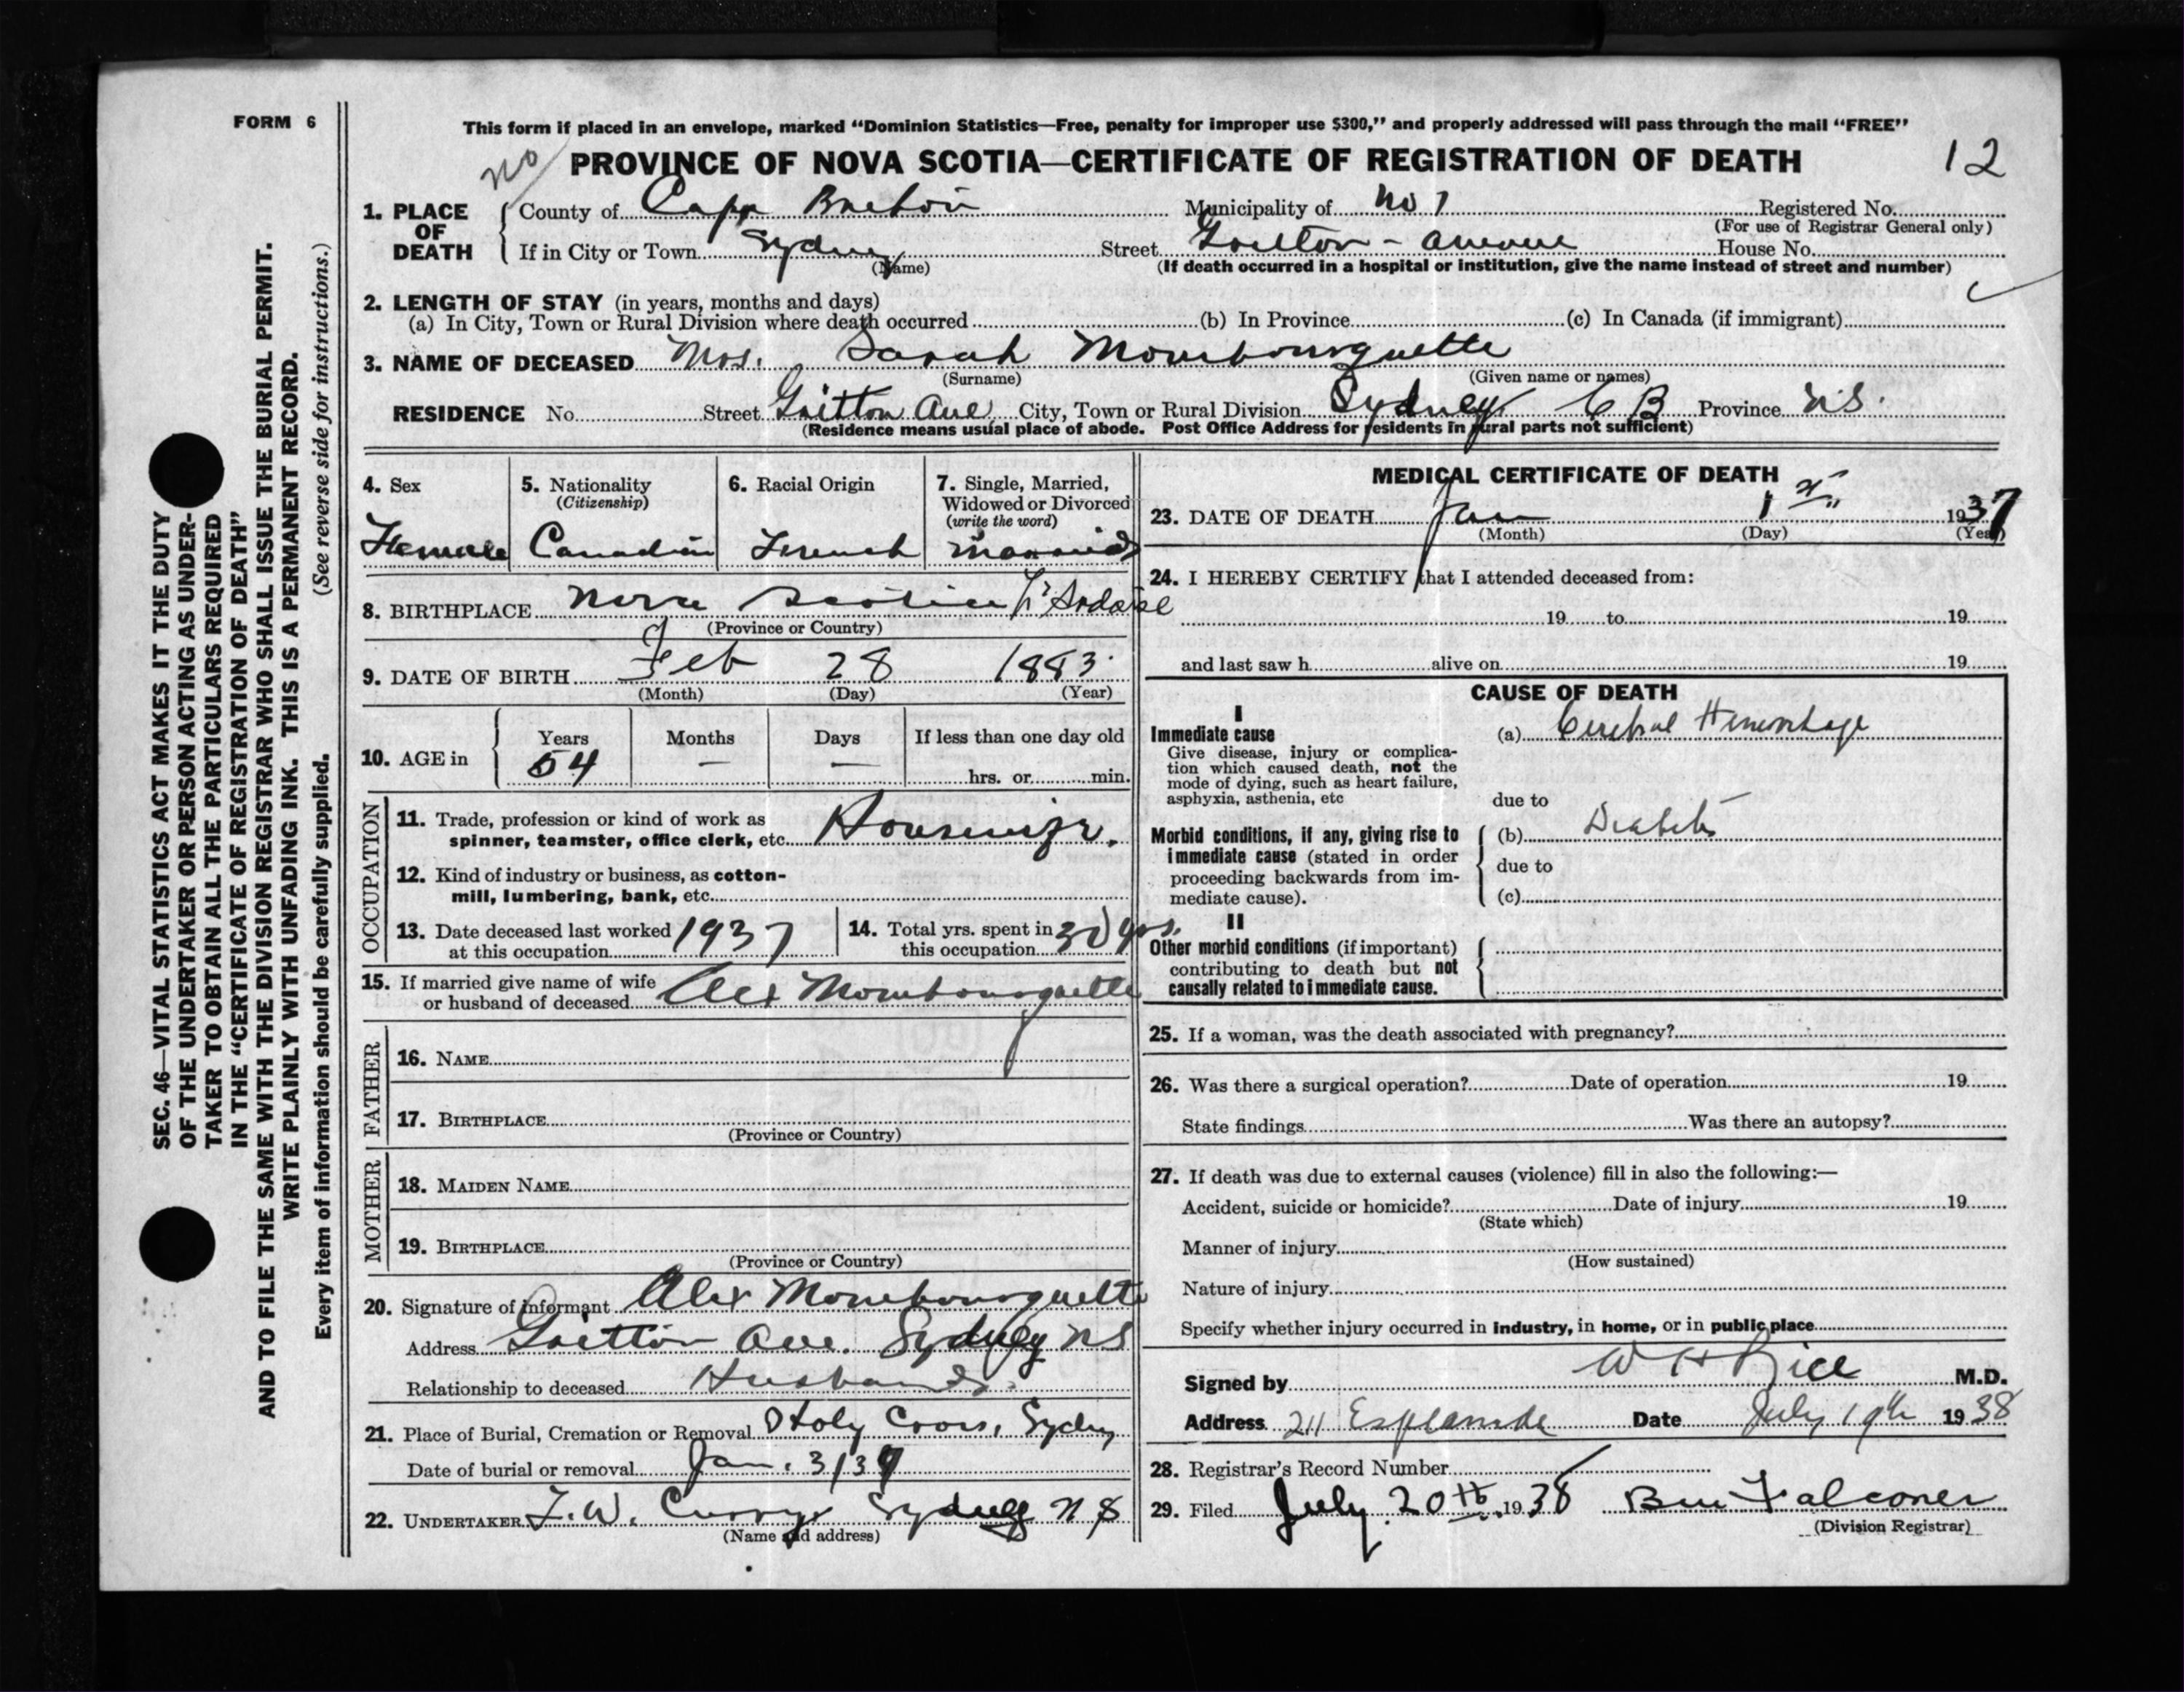 FORM 6
This form if placed in an envelope, marked “Dominion Statistics—Free, penalty for improper use $300,” and properly addressed will pass through the mail “FREE”
no
PROVINCE OF NOVA SCOTIA—CERTIFICATE OF REGISTRATION OF DEATH 12
1. PLACE OF DEATH
County of Cape Breton Municipality of No 1 Registered No.
(For use of Registrar General only)
If in City or Town Sydney Street Avenue House No.
(Name) (If death occurred in a hospital or institution, give the name instead of street and number)
2. LENGTH OF STAY (in years, months and days)
(a) In City, Town or Rural Division where death occurred (b) In Province (c) In Canada (if immigrant)
3. NAME OF DECEASED Mrs. Sarah Mombourquette
(Surname) (Given name or names)
RESIDENCE No. Street Ave City, Town or Rural Division Sydney C B Province N.S.
(Residence means usual place of abode. Post Office Address for residents in rural parts not sufficient)
4. Sex
Female
5. Nationality
(Citizenship)
Canadian
6. Racial Origin
French
7. Single, Married,
Widowed or Divorced
(write the word)
Married
8. BIRTHPLACE Nova Scotia L'Ardoise
(Province or Country)
9. DATE OF BIRTH Feb 28 1883
(Month) (Day) (Year)
10. AGE in
Years Months Days If less than one day old
54 — — hrs. or min.
OCCUPATION
11. Trade, profession or kind of work as
spinner, teamster, office clerk, etc. Housewife.
12. Kind of industry or business, as cotton-
mill, lumbering, bank, etc.
13. Date deceased last worked
at this occupation 1937
14. Total yrs. spent in
this occupation 30 yrs.
15. If married give name of wife
or husband of deceased Alex Mombourquette
FATHER
16. NAME
17. BIRTHPLACE
(Province or Country)
MOTHER
18. MAIDEN NAME
19. BIRTHPLACE
(Province or Country)
20. Signature of informant Alex Mombourquette
Address Ave. Sydney NS
Relationship to deceased Husband.
21. Place of Burial, Cremation or Removal Holy Cross, Sydney
Date of burial or removal Jan. 3/37
22. UNDERTAKER F.W. Curry Sydney N S
(Name and address)
MEDICAL CERTIFICATE OF DEATH
23. DATE OF DEATH Jan 1st 1937
(Month) (Day) (Year)
24. I HEREBY CERTIFY that I attended deceased from:
19 to 19
and last saw h alive on 19
CAUSE OF DEATH
I
Immediate cause
Give disease, injury or complica-
tion which caused death, not the
mode of dying, such as heart failure,
asphyxia, asthenia, etc
(a) Cerebral Hemorrhage
due to
Morbid conditions, if any, giving rise to
immediate cause (stated in order
proceeding backwards from im-
mediate cause).
(b) Diabetes
due to
(c)
II
Other morbid conditions (if important)
contributing to death but not
causally related to immediate cause.
25. If a woman, was the death associated with pregnancy?
26. Was there a surgical operation? Date of operation 19
State findings Was there an autopsy?
27. If death was due to external causes (violence) fill in also the following:—
Accident, suicide or homicide? Date of injury 19
(State which)
Manner of injury
(How sustained)
Nature of injury
Specify whether injury occurred in industry, in home, or in public place
Signed by W H Rice M.D.
Address 211 Esplanade Date July 19th 1938
28. Registrar's Record Number
29. Filed July 20th 1938 Falconer
(Division Registrar)
SEC. 46—VITAL STATISTICS ACT MAKES IT THE DUTY
OF THE UNDERTAKER OR PERSON ACTING AS UNDER-
TAKER TO OBTAIN ALL THE PARTICULARS REQUIRED
IN THE “CERTIFICATE OF REGISTRATION OF DEATH”
AND TO FILE THE SAME WITH THE DIVISION REGISTRAR WHO SHALL ISSUE THE BURIAL PERMIT.
WRITE PLAINLY WITH UNFADING INK. THIS IS A PERMANENT RECORD.
Every item of information should be carefully supplied. (See reverse side for instructions.)